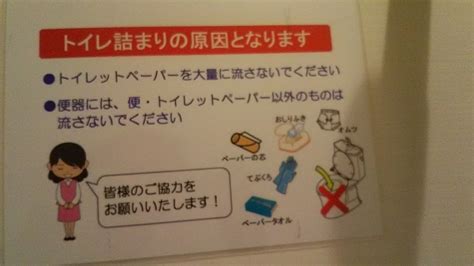 トイレ詰まりの原因となります
●トイレットペーパーを大量に流さないでください
●便器には、便・トイレットペーパー以外のものは
流さないでください
おしりふき
オムツ
ペーパーの芯
てぶくろ
ペーパータオル
皆様のご協力を
お願いいたします！